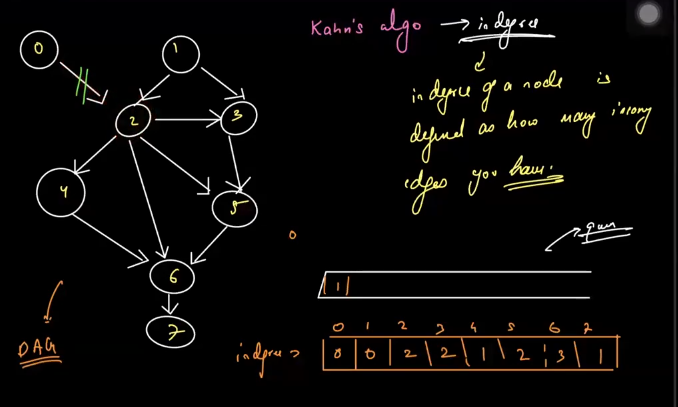 Kahn's algo → indegree
indegree of a node is
defined as how many incoming
edges you have.
0
1
2
3
4
5
6
7
0
queue
1
0 1 2 3 4 5 6 7
indegree → 0 0 2 2 1 2 3 1
DAG